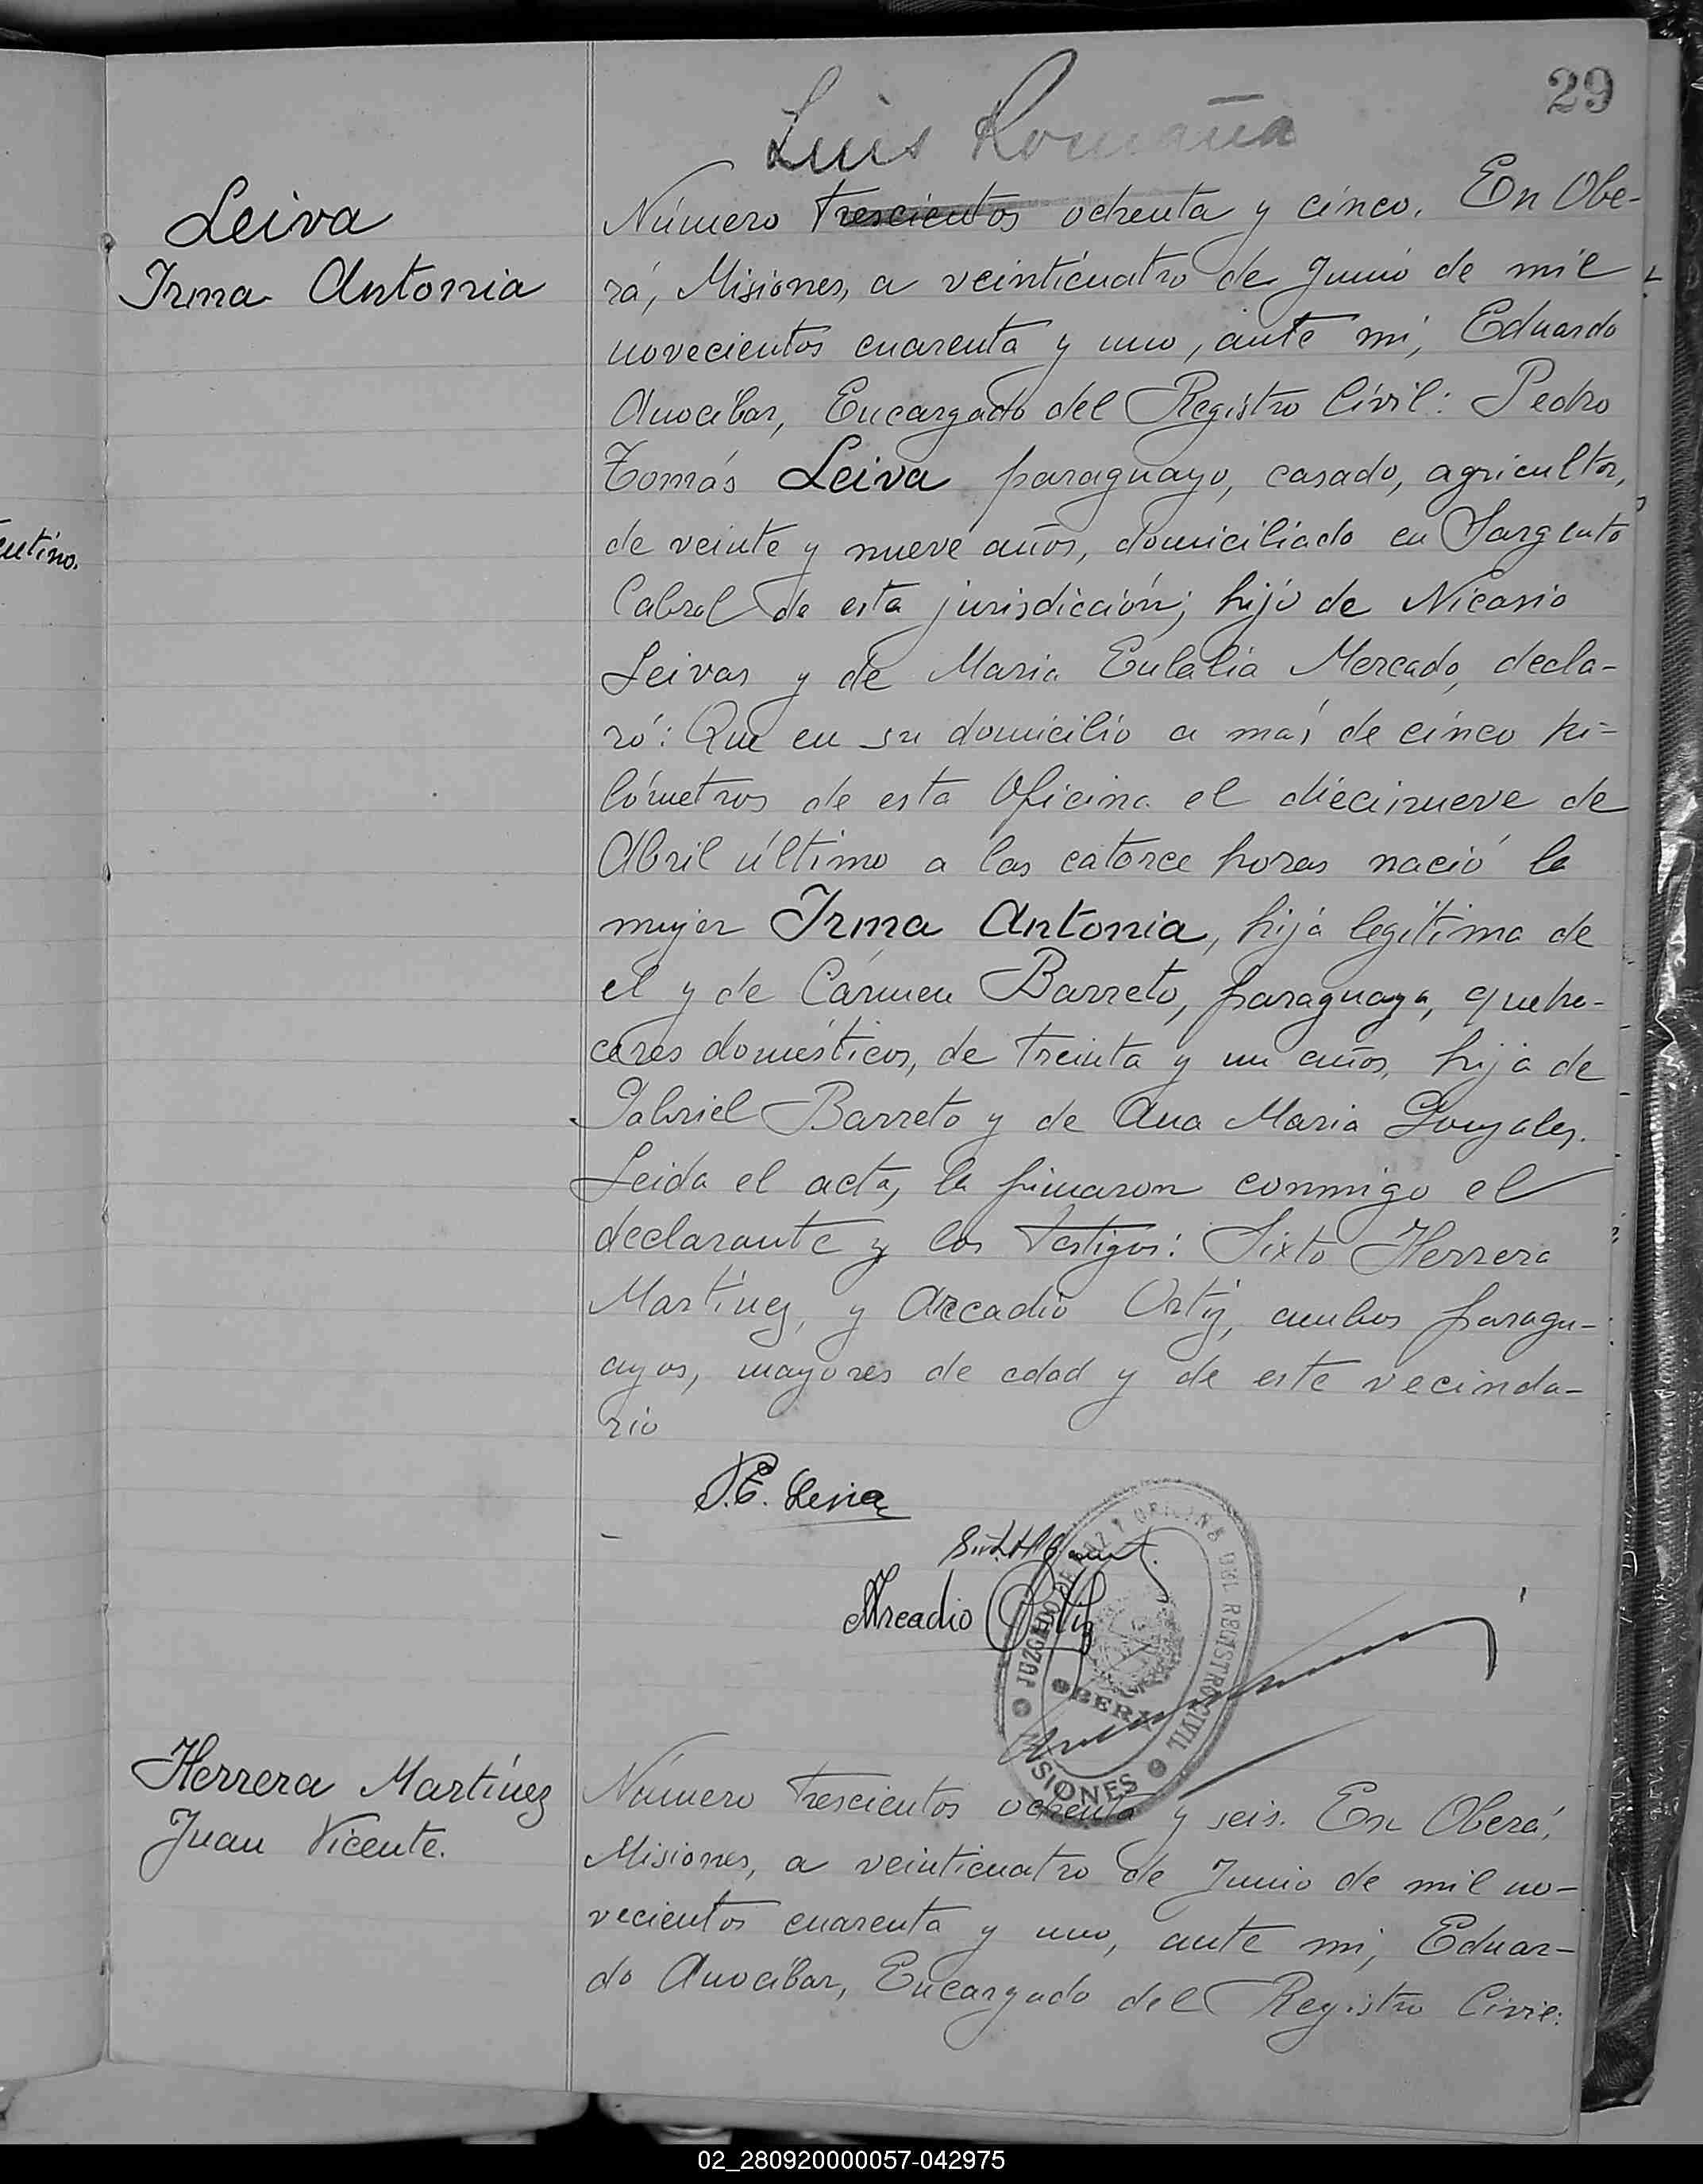 29
Luis Romaña
Leiva
Irma Antonia
Número trescientos ochenta y cinco. En Obe-
rá, Misiones, a veinticuatro de Junio de mil
novecientos cuarenta y uno, ante mi, Eduardo
Anocibar, Encargado del Registro Civil: Pedro
Tomás Leiva paraguayo, casado, agricultor,
de veinte y nueve años, domiciliado en Sargento
Cabral de esta jurisdicción; hijo de Nicasio
Leivas y de Maria Eulalia Mercado, decla-
ró: Que en su domicilio a más de cinco ki-
lómetros de esta Oficina el diecinueve de
Abril último a las catorce horas nació la
mujer Irma Antonia, hija legítima de
el y de Cármen Barreto, paraguaya, queha-
ceres domésticos, de treinta y un años, hija de
Gabriel Barreto y de Ana Maria Gonzalez.
Leida el acta, la firmaron conmigo el
declarante y los testigos: Sixto Herrera
Martínez, y Arcadio Ortiz, ambos paragu-
ayos, mayores de edad y de este vecinda-
rio
Arcadio Ortiz
JUZGADO DE PAZ Y OFICINA DEL REGISTRO CIVIL
OBERA
MISIONES
Herrera Martínez
Juan Vicente.
Número trescientos ochenta y seis. En Oberá,
Misiones, a veinticuatro de Junio de mil no-
vecientos cuarenta y uno, ante mi, Eduar-
do Anocibar, Encargado del Registro Civil:
entino.
02_280920000057-042975